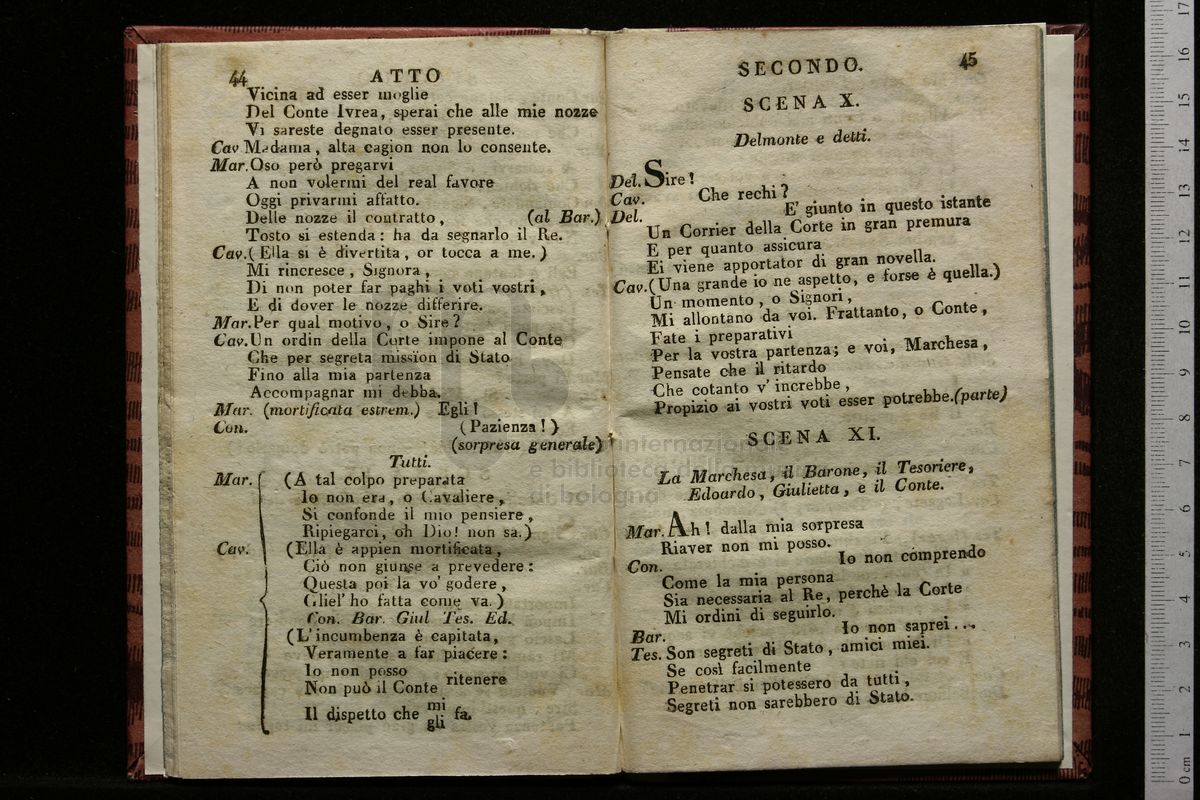 44 ATTO
Vicina ad esser moglie
Del Conte Ivrea, sperai che alle mie nozze
Vi sareste degnato esser presente.
Cav Madama, alta cagion non lo consente.
Mar. Oso però pregarvi
A non volermi del real favore
Oggi privarmi affatto.
Delle nozze il contratto, (al Bar.)
Tosto si estenda: ha da segnarlo il Re.
Cav. (Ella si è divertita, or tocca a me.)
Mi rincresce, Signora,
Di non poter far paghi i voti vostri,
E di dover le nozze differire.
Mar. Per qual motivo, o Sire?
Cav. Un ordin della Corte impone al Conte
Che per segreta mission di Stato
Fino alla mia partenza
Accompagnar mi debba.
Mar. (mortificata estrem.) Egli!
Con. (Pazienza!)
(sorpresa generale)
Tutti.
Mar. (A tal colpo preparata
Io non era, o Cavaliere,
Si confonde il mio pensiere,
Ripiegarci, oh Dio! non sa.)
Cav. (Ella è appien mortificata,
Ciò non giunse a prevedere:
Questa poi la vo' godere,
Gliel' ho fatta come va.)
Con. Bar. Giul Tes. Ed.
(L'incumbenza è capitata,
Veramente a far piacere:
Io non posso
Non può il Conte ritenere
Il dispetto che mi gli fa.
SECONDO. 45
SCENA X.
Delmonte e detti.
Del. Sire!
Cav. Che rechi?
Del. E' giunto in questo istante
Un Corrier della Corte in gran premura
E per quanto assicura
Ei viene apportator di gran novella.
Cav. (Una grande io ne aspetto, e forse è quella.)
Un momento, o Signori,
Mi allontano da voi. Frattanto, o Conte,
Fate i preparativi
Per la vostra partenza; e voi, Marchesa,
Pensate che il ritardo
Che cotanto v' increbbe,
Propizio ai vostri voti esser potrebbe. (parte)
SCENA XI.
La Marchesa, il Barone, il Tesoriere,
Edoardo, Giulietta, e il Conte.
Mar. Ah! dalla mia sorpresa
Riaver non mi posso.
Con. Io non comprendo
Come la mia persona
Sia necessaria al Re, perchè la Corte
Mi ordini di seguirlo.
Bar. Io non saprei...
Tes. Son segreti di Stato, amici miei.
Se così facilmente
Penetrar si potessero da tutti,
Segreti non sarebbero di Stato.
internazionale
e biblioteca della
di bologna
0 cm 1 2 3 4 5 6 7 8 9 10 11 12 13 14 15 16 17